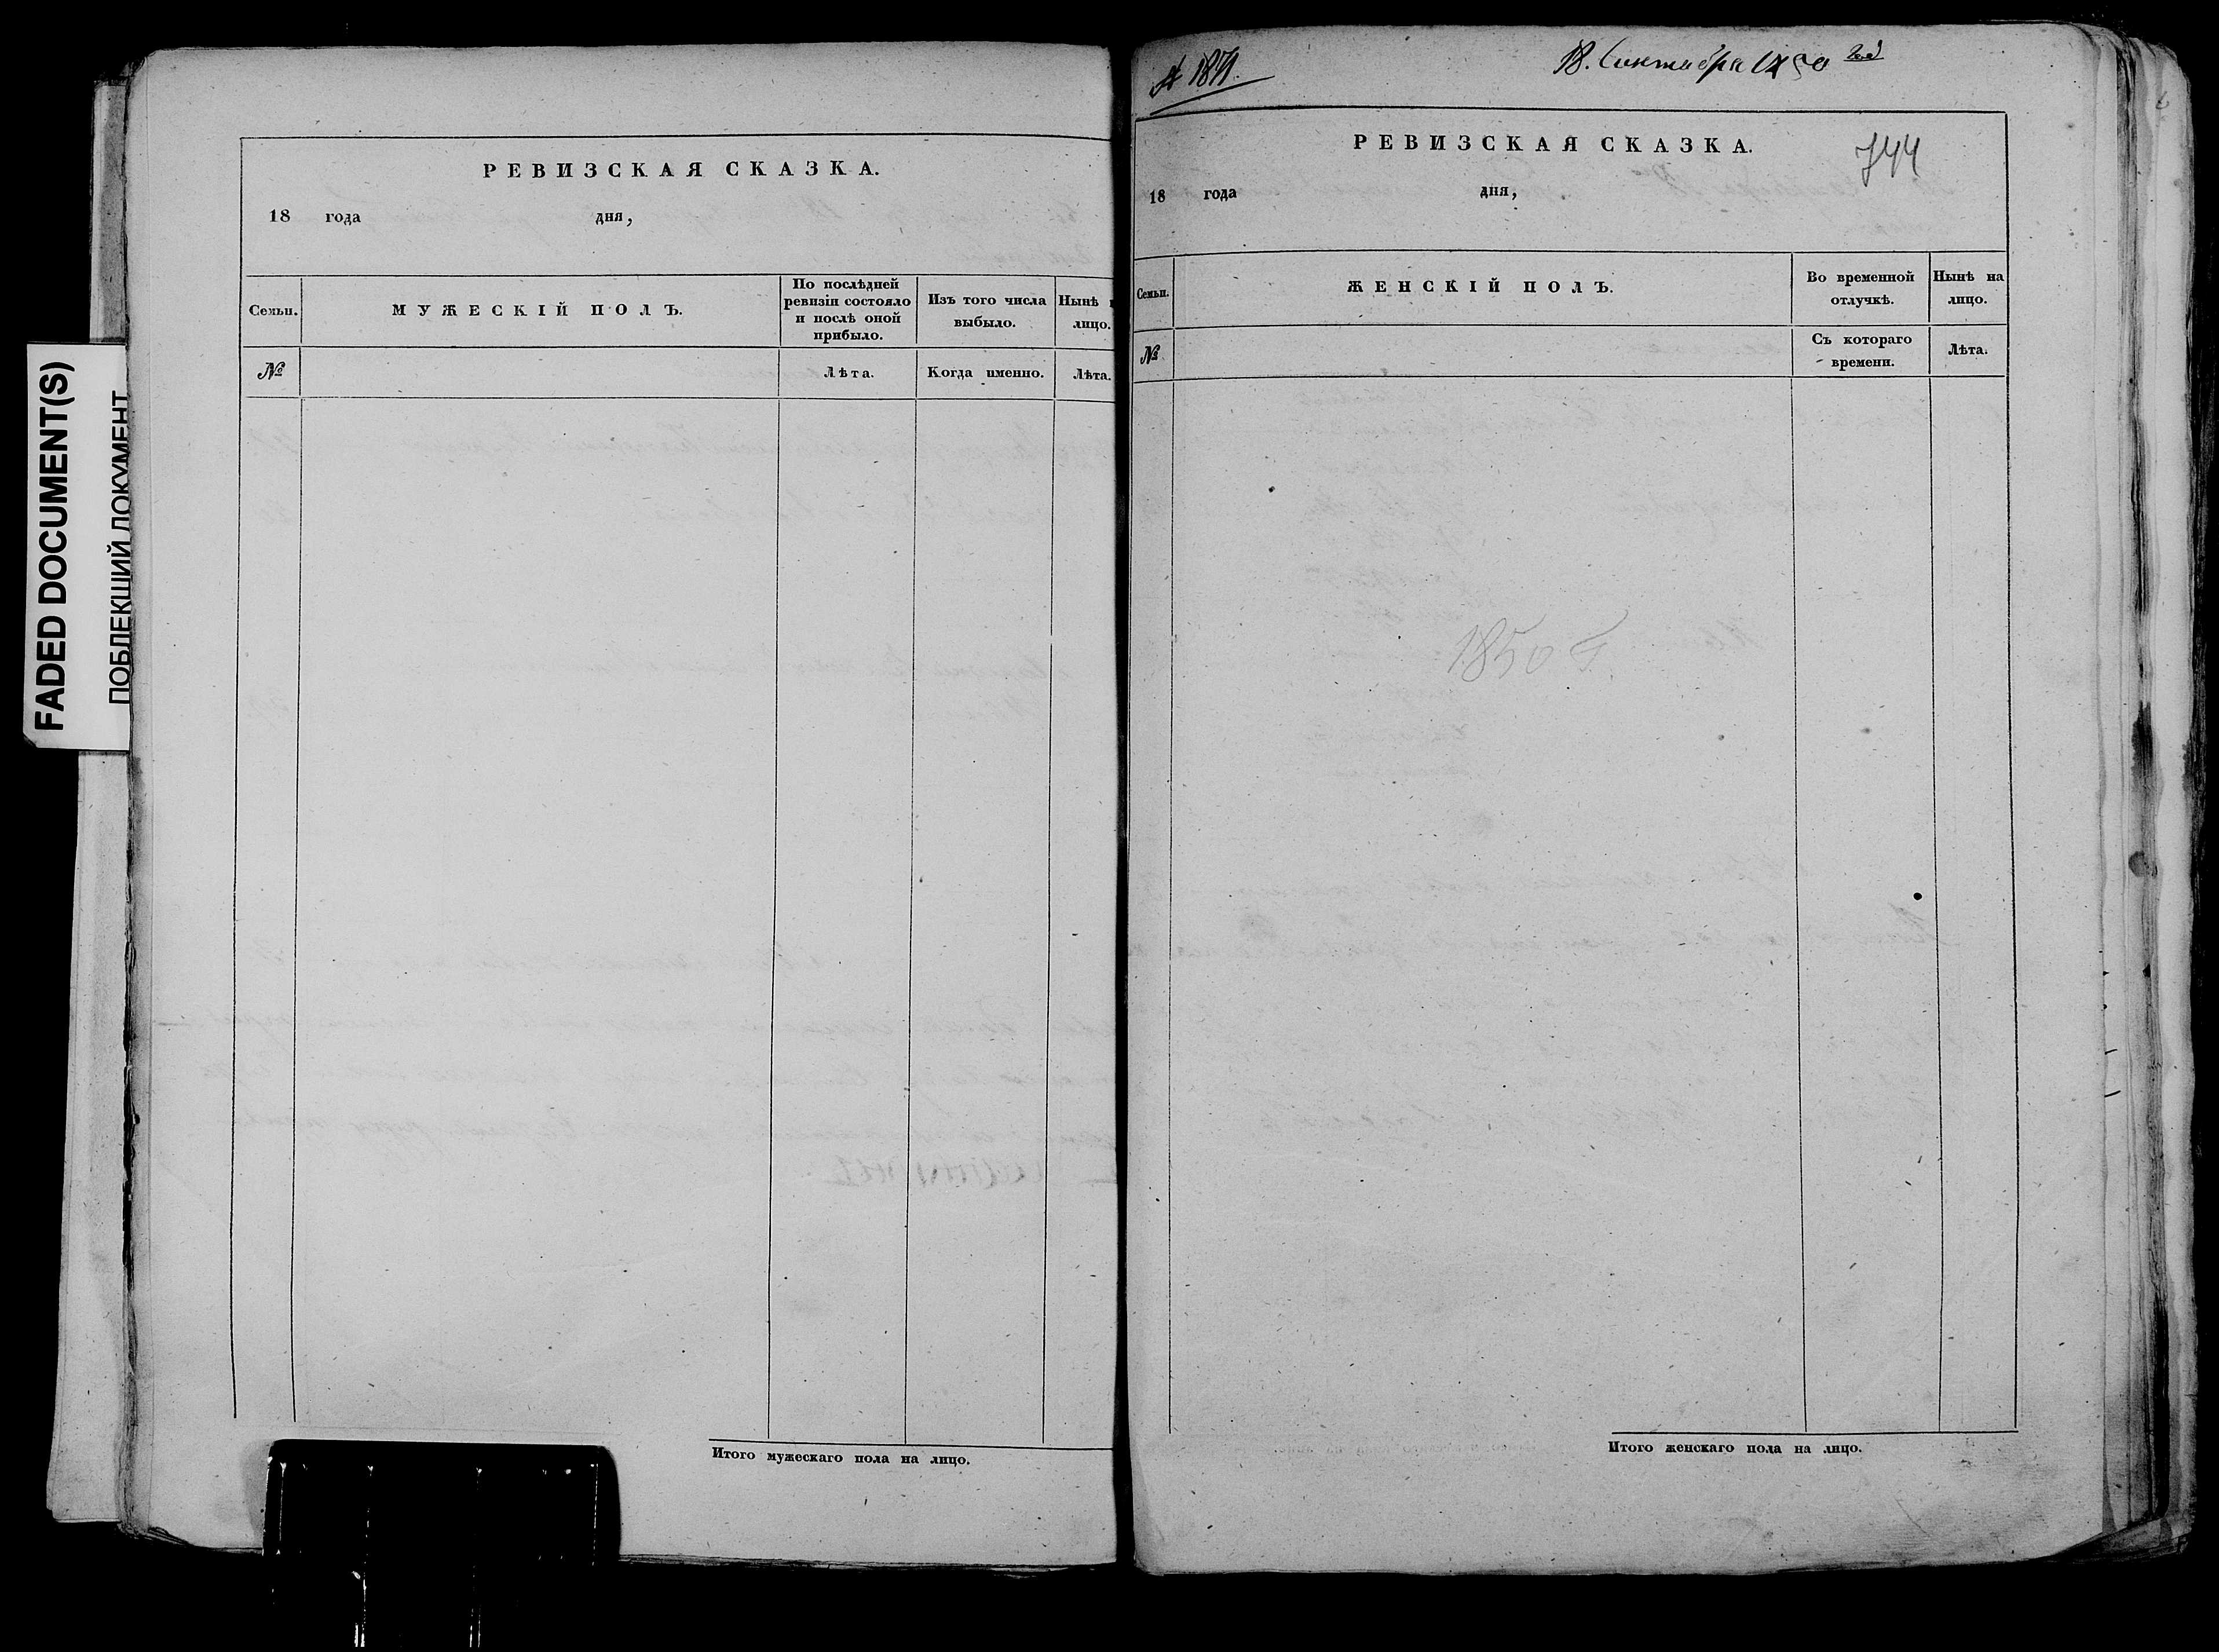 FADED DOCUMENT(S)
ПОБЛЕКШИЙ ДОКУМЕНТ
РЕВИЗСКАЯ СКАЗКА.
18 года дня,
Семьи.
МУЖЕСКІЙ ПОЛЪ.
По послѣдней
ревизіи состояло
и послѣ оной
прибыло.
Изъ того числа
выбыло.
Нынѣ
лицо.
№
Лѣта.
Когда именно.
Лѣта.
Итого мужескаго пола на лицо.
№ 1871.
18. Сентября 1850 год
РЕВИЗСКАЯ СКАЗКА.
744
18 года дня,
Семьи.
ЖЕНСКІЙ ПОЛЪ.
Во временной
отлучкѣ.
Нынѣ на
лицо.
№
Съ котораго
времени.
Лѣта.
1850 г
Итого женскаго пола на лицо.